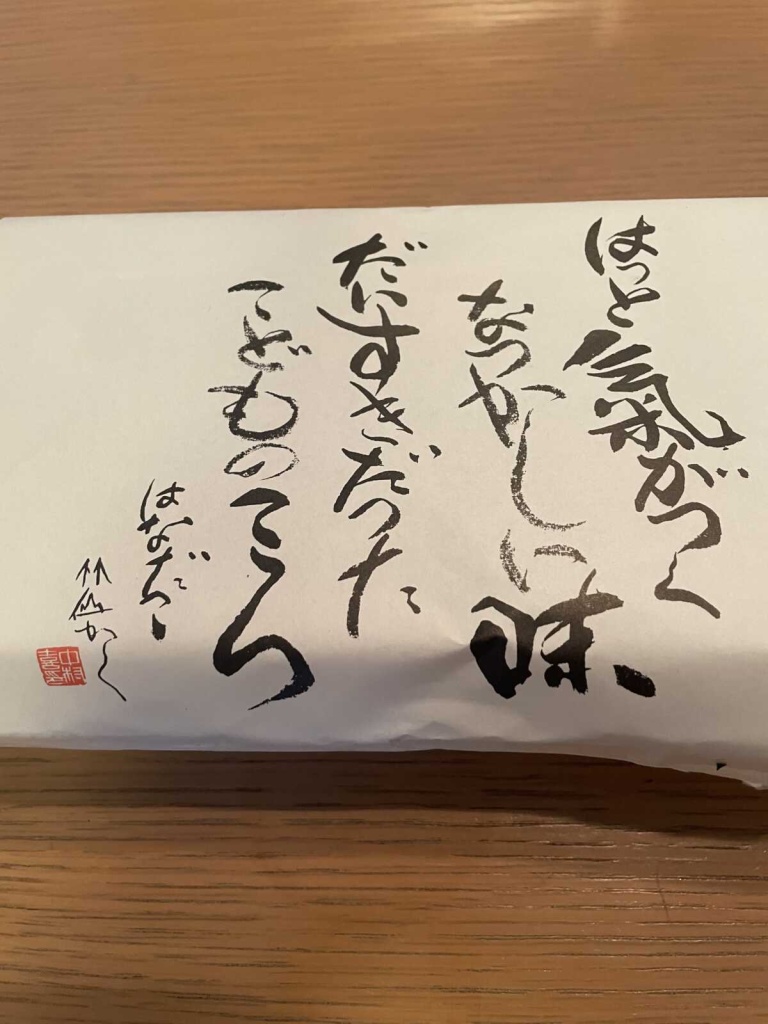 はっと氣がつく
なつかしい味
だいすきだった
こどものころ
はなだろ
竹仙かく